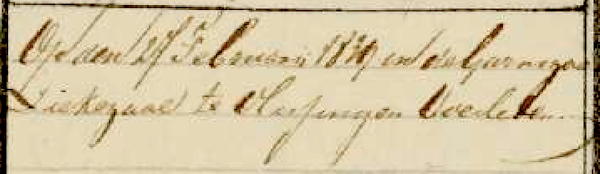 Op den 27 Februarij 1829 in de Garnizoe
Ziekezaal te Vlissingen Overleden